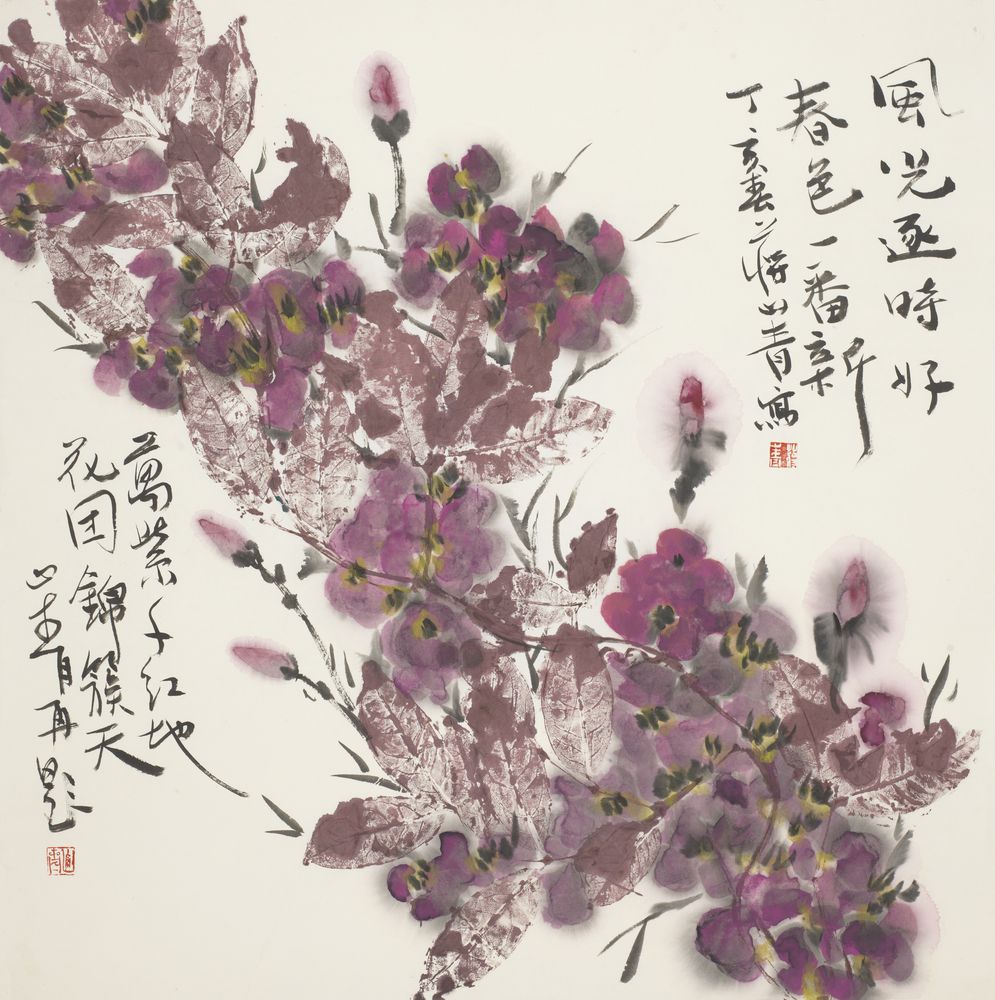 風光逐時好
春色一番新
丁亥春蔣山青寫
萬紫千红地
花团錦簇天
山青再題